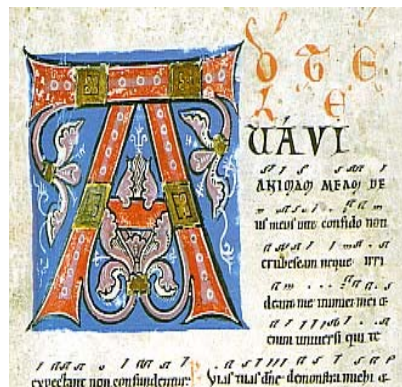 A
D TE
LE
UAVI
ANIMAM MEAM DE
us meus in te confido non
erubescam neque irri
deant me inimici mei &
enim universi qui te
expectant non confundentur. Vias tuas dñe demonstra michi &